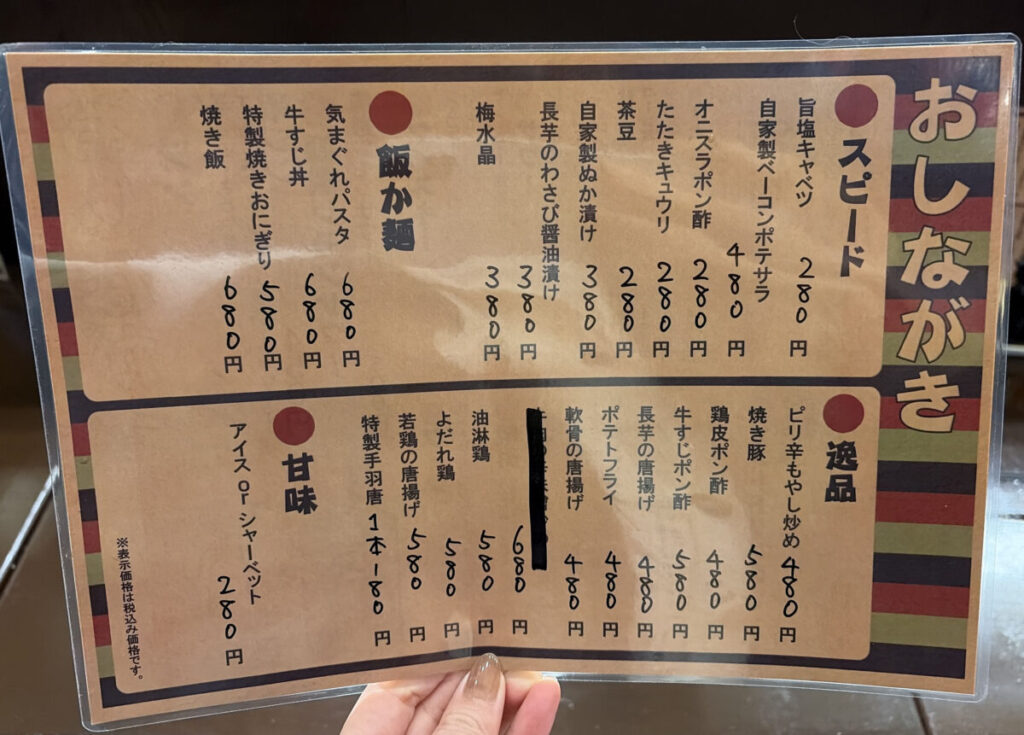 おしながき
スピード
旨塩キャベツ 280円
自家製ベーコンポテサラ 480円
オニスラポン酢 280円
たたきキュウリ 280円
茶豆 280円
自家製ぬか漬け 380円
長芋のわさび醤油漬け 380円
梅水晶 380円
飯か麺
気まぐれパスタ 680円
牛すじ丼 680円
特製焼きおにぎり 580円
焼き飯 680円
逸品
ピリ辛もやし炒め 480円
焼き豚 580円
鶏皮ポン酢 480円
牛すじポン酢 580円
長芋の唐揚げ 480円
ポテトフライ 480円
軟骨の唐揚げ 480円
680円
油淋鶏 580円
よだれ鶏 580円
若鶏の唐揚げ 580円
特製手羽唐 1本180円
甘味
アイス or シャーベット 280円
※表示価格は税込み価格です。